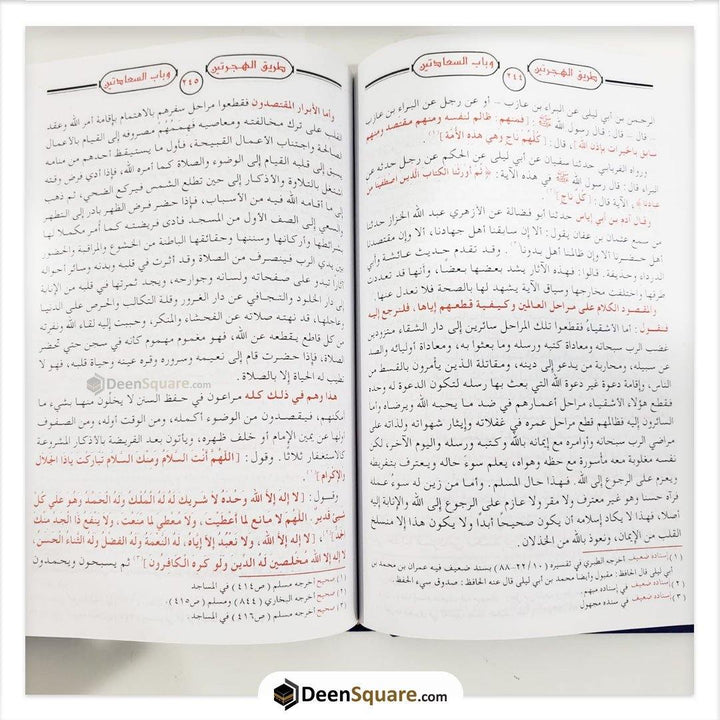 طريق الهجرتين
٢٤٤
وباب السعادتين
الرحمن بن أبي ليلى عن البراء بن عازب - أو عن رجل عن البراء بن عازب
- قال - قال: قال رسول الله ﷺ: [فمنهم: ظالم لنفسه ومنهم مقتصد ومنهم
سابق بالخيرات بإذن الله]، قال: [كلهم ناج وهي هذه الأمة](١).
ورواه الفريابي حدثنا سفيان عن أبي ليلى عن الحكم عن رجل حدثه عن
البراء قال: قال رسول الله ﷺ في هذه الآية: ﴿ثم أورثنا الكتاب الذين اصطفينا من
عبادنا﴾ الآية قال: [كل ناج](٢).
وقال آدم بن أبي إياس حدثنا أبو فضالة عن الأزهري عبد الله الخزاز حدثنا
من سمع عثمان بن عفان يقول: ألا إن سابقنا أهل جهادنا، ألا وإن مقتصدنا
أهل حضرنا ألا وإن ظالمنا أهل بدونا(٣). وقد تقدم حديث عائشة وأبي
الدرداء وحذيفة. قالوا: فهذه الآثار يشد بعضها بعضا، وأنها قد تعددت
طرقها واختلفت مخارجها وسياق الآية يشهد لها بالصحة فلا نعدل عنها.
والمقصود الكلام على مراحل العالمين وكيفية قطعهم إياها، فلنرجع إليه
فنقول: أما الأشقياء فقطعوا تلك المراحل سائرين إلى دار الشقاء متزودين
غضب الرب سبحانه ومعاداة كتبه ورسله وما بعثوا به، ومعاداة أوليائه والصد
عن سبيله، ومحاربة من يدعو إلى دينه، ومقاتلة الذين يأمرون بالقسط من
الناس، وإقامة دعوة غير دعوة الله التي بعث بها رسله لتكون الدعوة له وحده
فقطع هؤلاء الأشقياء مراحل أعمارهم في ضد ما يحبه الله ويرضاه وأما
السائرون إليه فظالمهم قطع مراحل عمره في غفلاته وإيثار شهواته ولذاته على
مراضي الرب سبحانه وأوامره مع إيمانه بالله وكتبه ورسله واليوم الآخر، لكن
نفسه مغلوبة معه مأسورة مع حظه وهواه، يعلم سوء حاله ويعترف بتفريطه
ويعزم على الرجوع إلى الله. فهذا حال المسلم. وأما من زين له سوء عمله
فرآه حسنا وهو غير معترف ولا مقر ولا عازم على الرجوع إلى الله والإنابة إليه
أصلا، فهذا لا يكاد إسلامه أن يكون صحيحا أبدا ولا يكون هذا إلا منسلخ
القلب من الإيمان، ونعوذ بالله من الخذلان.
(١) إسناده ضعيف. أخرجه الطبري في تفسيره (٢٢/١٠-٨٨) بسند ضعيف فيه عمران بن محمد بن
أبي ليلى قال الحافظ: مقبول وأيضا محمد بن أبي ليلى قال عنه الحافظ: صدوق سيء الحفظ.
(٢) إسناده ضعيف في إسناده مبهم.
(٣) إسناده ضعيف في سنده مجهول
طريق الهجرتين
٢٤٥
وباب السعادتين
وأما الأبرار المقتصدون فقطعوا مراحل سفرهم بالاهتمام بإقامة أمر الله وعقد
القلب على ترك مخالفته ومعاصيه فهممهم مصروفة إلى القيام بالأعمال
الصالحة واجتناب الأعمال القبيحة، فأول ما يستيقظ أحدهم من منامه
يسبق إلى قلبه القيام إلى الوضوء والصلاة كما أمره الله، فإذا أدى فرض وقته
اشتغل بالتلاوة والأذكار إلى حين تطلع الشمس فيركع الضحى، ثم ذهب
إلى ما أقامه الله فيه من الأسباب، فإذا حضر فرض الظهر بادر إلى التطهر
والسعي إلى الصف الأول من المسجد فأدى فريضته كما أمر مكملا لها
بشرائطها وأركانها وسننها وحقائقها الباطنة من الخشوع والمراقبة والحضور
بين يدي الرب فينصرف من الصلاة وقد أثرت في قلبه وبدنه وسائر أحواله
آثارا تبدو على صفحاته ولسانه وجوارحه، ويجد ثمرتها في قلبه من الإنابة
إلى دار الخلود والتجافي عن دار الغرور وقلة التكالب والحرص على الدنيا
وعاجلها، قد نهته صلاته عن الفحشاء والمنكر، وحببت إليه لقاء الله ونفرته
من كل قاطع يقطعه عن الله، فهو مغموم مهموم كأنه في سجن حتى تحضر
الصلاة، فإذا حضرت قام إلى نعيمه وسروره وقرة عينه وحياة قلبه، فهو لا
تطيب له الحياة إلا بالصلاة.
DeenSquare.com
هذا وهم في ذلك كله مراعون في حفظ السنن لا يخلون منها بشيء ما
أمكنهم، فيقصدون من الوضوء أكمله، ومن الوقت أوله، ومن الصفوف
أولها عن يمين الإمام أو خلف ظهره، ويأتون بعد الفريضة بالأذكار المشروعة
كالاستغفار ثلاثا. وقول: [اللهم أنت السلام ومنك السلام تباركت ياذا الجلال
والإكرام](١).
وقول: [لا إله إلا الله وحده لا شريك له له الملك وله الحمد وهو على كل
شيء قدير. اللهم لا مانع لما أعطيت، ولا معطي لما منعت، ولا ينفع ذا الجد منك
الجد](٢)، [لا إله إلا الله، ولا نعبد إلا إياه، له النعمة وله الفضل وله الثناء الحسن،
لا إله إلا الله مخلصين له الدين ولو كره الكافرون](٣) ثم يسبحون ويحمدون
(١) صحيح أخرجه مسلم (ص٤١٤) في المساجد.
(٢) صحيح أخرجه البخاري (٨٤٤) ومسلم (ص٤١٥).
(٣) صحيح أخرجه مسلم (ص٤١٦) في المساجد.
DeenSquare.com